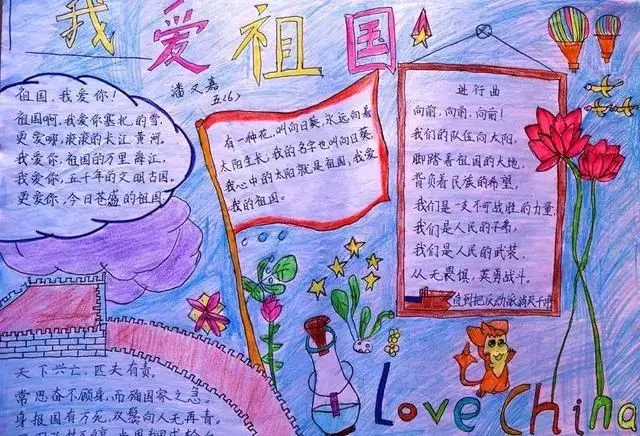 我爱祖国
潘又嘉
五(6)
祖国,我爱你!
祖国啊,我爱你塞北的雪。
更爱哪,滚滚的长江黄河。
我爱你,祖国的万里
我爱你,五千年的文明古国。
更爱你,今日苍盛的祖国。
有一种花,叫向日葵,永远向着
太阳生长,我的名字也叫向日葵,
我心中的太阳就是祖国,我爱
我的祖国。
进行曲
向前,向前,向前!
我们的队伍向太阳,
脚踏着祖国的大地,
背负着民族的希望,
我们是一支不可战胜的力量,
我们是人民的子弟,
我们是人民的武装,
从无畏惧,英勇战斗。
直到把反动派消灭干净
天下兴亡,匹夫有责。
常思奋不顾身,而殉国家之急。
身报国有万死,双鬓向人无再青。
Love China